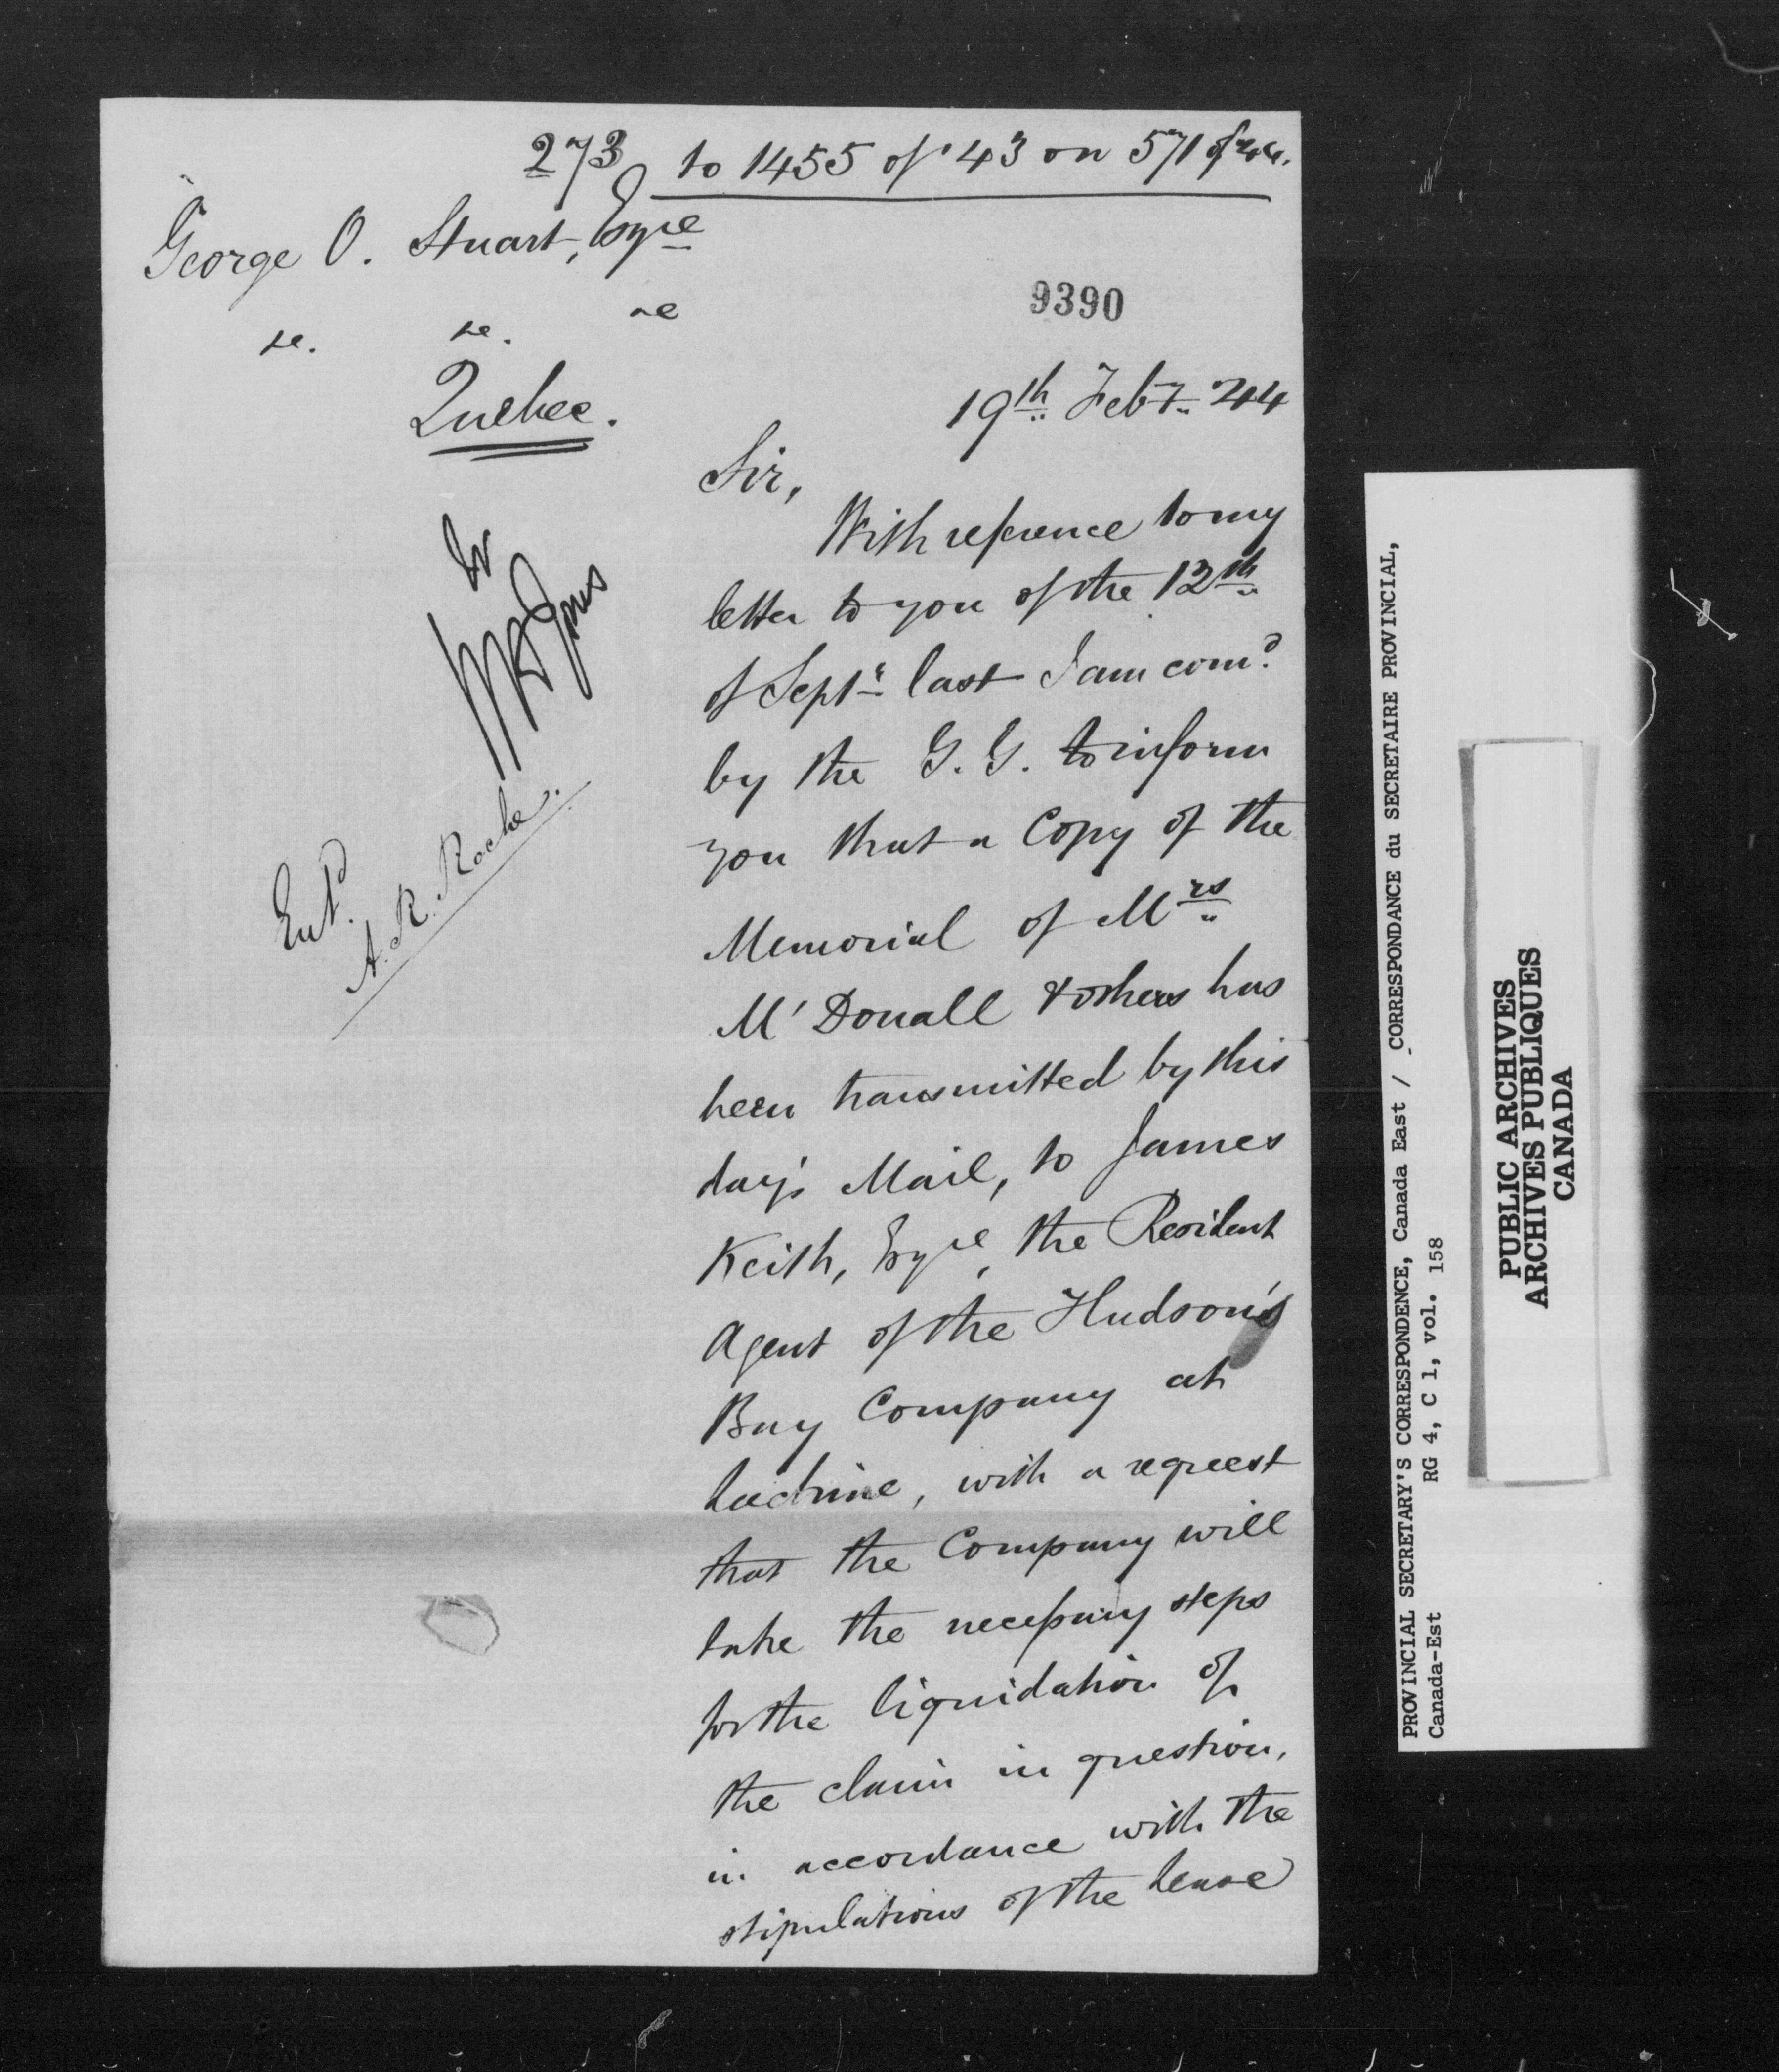 273 to 1455 of '43 on 571 of
George O. Stuart, Esqre
&c. &c. &c
9390
Quebec.
19th Feby 44
Sir,
With reference to my
letter to you of the 12th
of Septr last I am comd
by the G. G. to inform
you that a Copy of the
Memorial of Mrs
M'Donall & others has
been transmitted by this
day's Mail, to James
Keith, Esqre, the Resident
Agent of the Hudson's
Bay Company at
Lachine, with a request
that the Company will
take the necessary steps
for the liquidation of
the claim in question,
in accordance with the
stipulations of the lease
Entd.
A. R. Roche.
PROVINCIAL SECRETARY'S CORRESPONDENCE, Canada East / CORRESPONDANCE du SECRETAIRE PROVINCIAL,
Canada-Est RG 4, C 1, vol. 158
PUBLIC ARCHIVES
ARCHIVES PUBLIQUES
CANADA